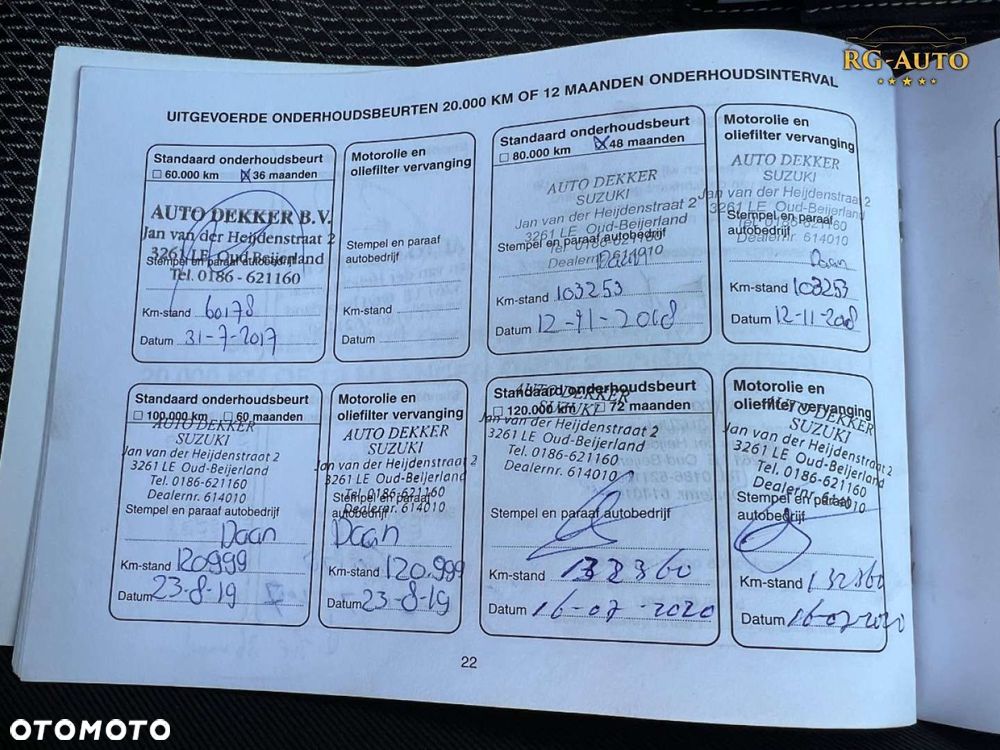 RG-AUTO
UITGEVOERDE ONDERHOUDSBEURTEN 20.000 KM OF 12 MAANDEN ONDERHOUDSINTERVAL
Standaard onderhoudsbeurt
60.000 km 36 maanden
AUTO DEKKER B.V.
Jan van der Heijdenstraat 2
3261 LE Oud-Beijerland
Stempel en paraaf autobedrijf
Tel. 0186 - 621160
Km-stand 60178
Datum 31-7-2017
Motorolie en
oliefilter vervanging
Stempel en paraaf
autobedrijf
Km-stand
Datum
Standaard onderhoudsbeurt
80.000 km 48 maanden
AUTO DEKKER
SUZUKI
Jan van der Heijdenstraat 2
3261 LE Oud-Beijerland
Stempel en paraaf autobedrijf
Tel. 0186-621160
Dealernr. 614010
Daan
Km-stand 103253
Datum 12-11-2018
Motorolie en
oliefilter vervanging
AUTO DEKKER
SUZUKI
Jan van der Heijdenstraat 2
3261 LE Oud-Beijerland
Stempel en paraaf
Tel. 0186-621160
autobedrijf
Dealernr. 614010
Daan
Km-stand 103253
Datum 12-11-2018
Standaard onderhoudsbeurt
100.000 km 60 maanden
AUTO DEKKER
SUZUKI
Jan van der Heijdenstraat 2
3261 LE Oud-Beijerland
Tel. 0186-621160
Dealernr. 614010
Stempel en paraaf autobedrijf
Daan
Km-stand 120999
Datum 23-8-19
Motorolie en
oliefilter vervanging
AUTO DEKKER
SUZUKI
Jan van der Heijdenstraat 2
3261 LE Oud-Beijerland
Tel. 0186-621160
Stempel en paraaf
Dealernr. 614010
autobedrijf
Daan
Km-stand 120.999
Datum 23-8-19
Standaard onderhoudsbeurt
AUTO DEKKER
120.000 km 72 maanden
SUZUKI
Jan van der Heijdenstraat 2
3261 LE Oud-Beijerland
Tel. 0186-621160
Dealernr. 614010
Stempel en paraaf autobedrijf
Km-stand 132360
Datum 16-07-2020
Motorolie en
oliefilter vervanging
AUTO DEKKER
SUZUKI
Jan van der Heijdenstraat 2
3261 LE Oud-Beijerland
Tel. 0186-621160
Dealernr. 614010
Stempel en paraaf
autobedrijf
Km-stand 132360
Datum 16-07-2020
22
OTOMOTO